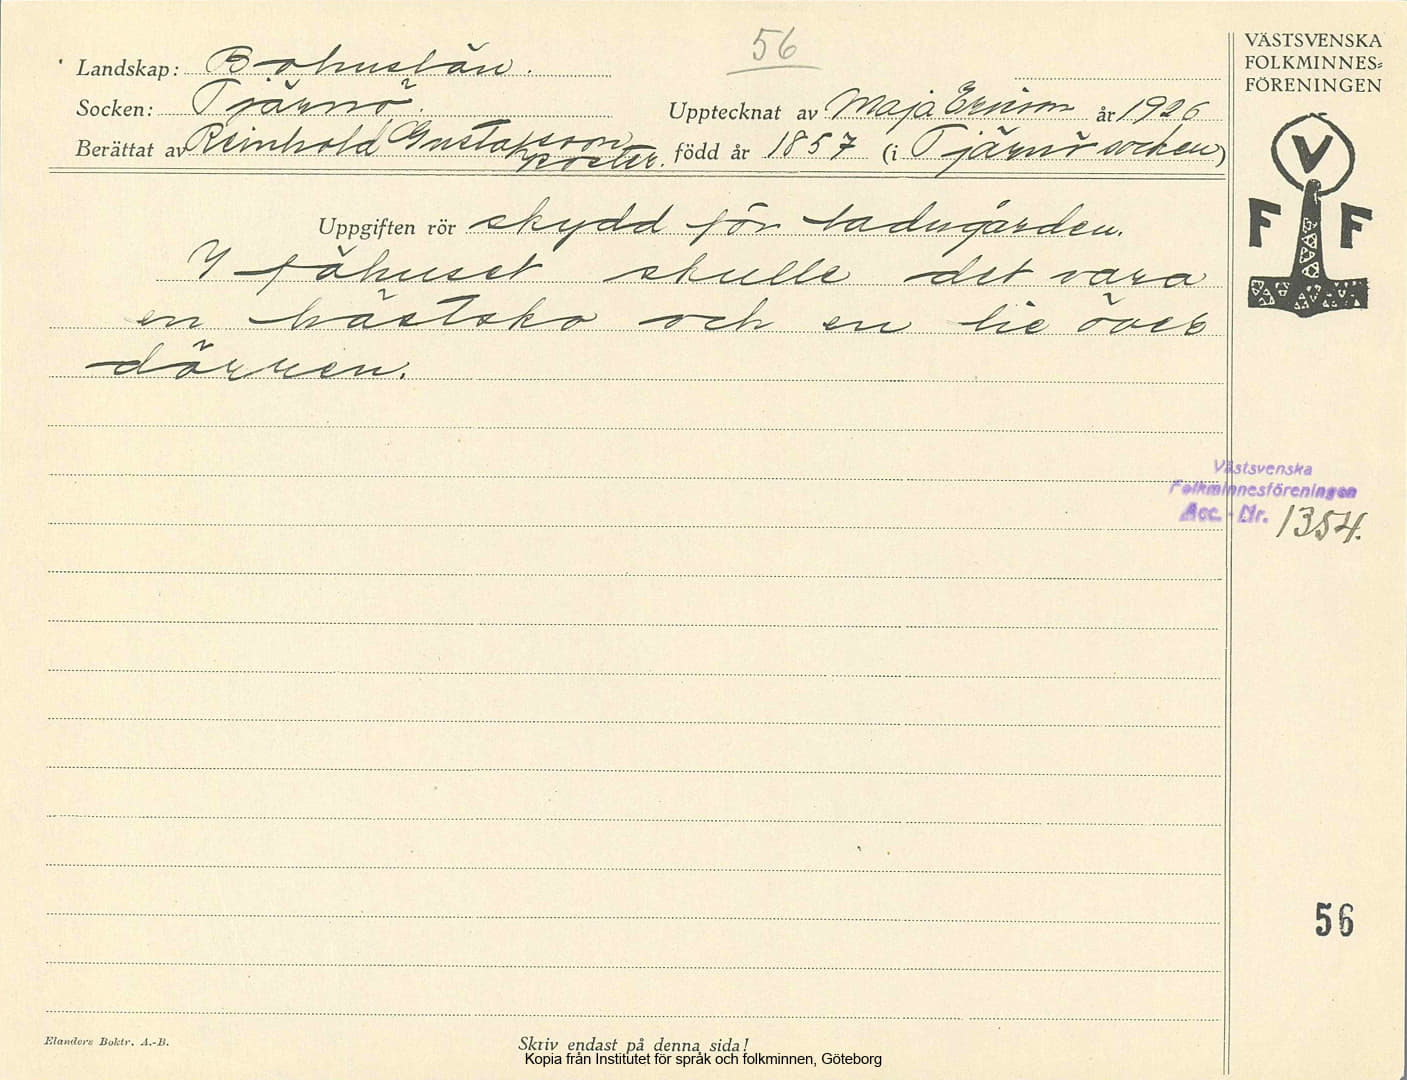 56
Landskap: Bohuslän.
Socken: Tjärnö.
Upptecknat av Maja Ericson år 1926
Berättat av Reinhold Gustafsson
Koster. född år 1857 (i Tjärnö socken)
Uppgiften rör skydd för ladugården.
I fähuset skulle det vara
en hästsko och en lie över
dörren.
VÄSTSVENSKA
FOLKMINNES=
FÖRENINGEN
V
F F
Västsvenska
Folkminnesföreningen
Acc. - Nr. 1354.
56
Elanders Boktr. A.-B.
Skriv endast på denna sida!
Kopia från Institutet för språk och folkminnen, Göteborg